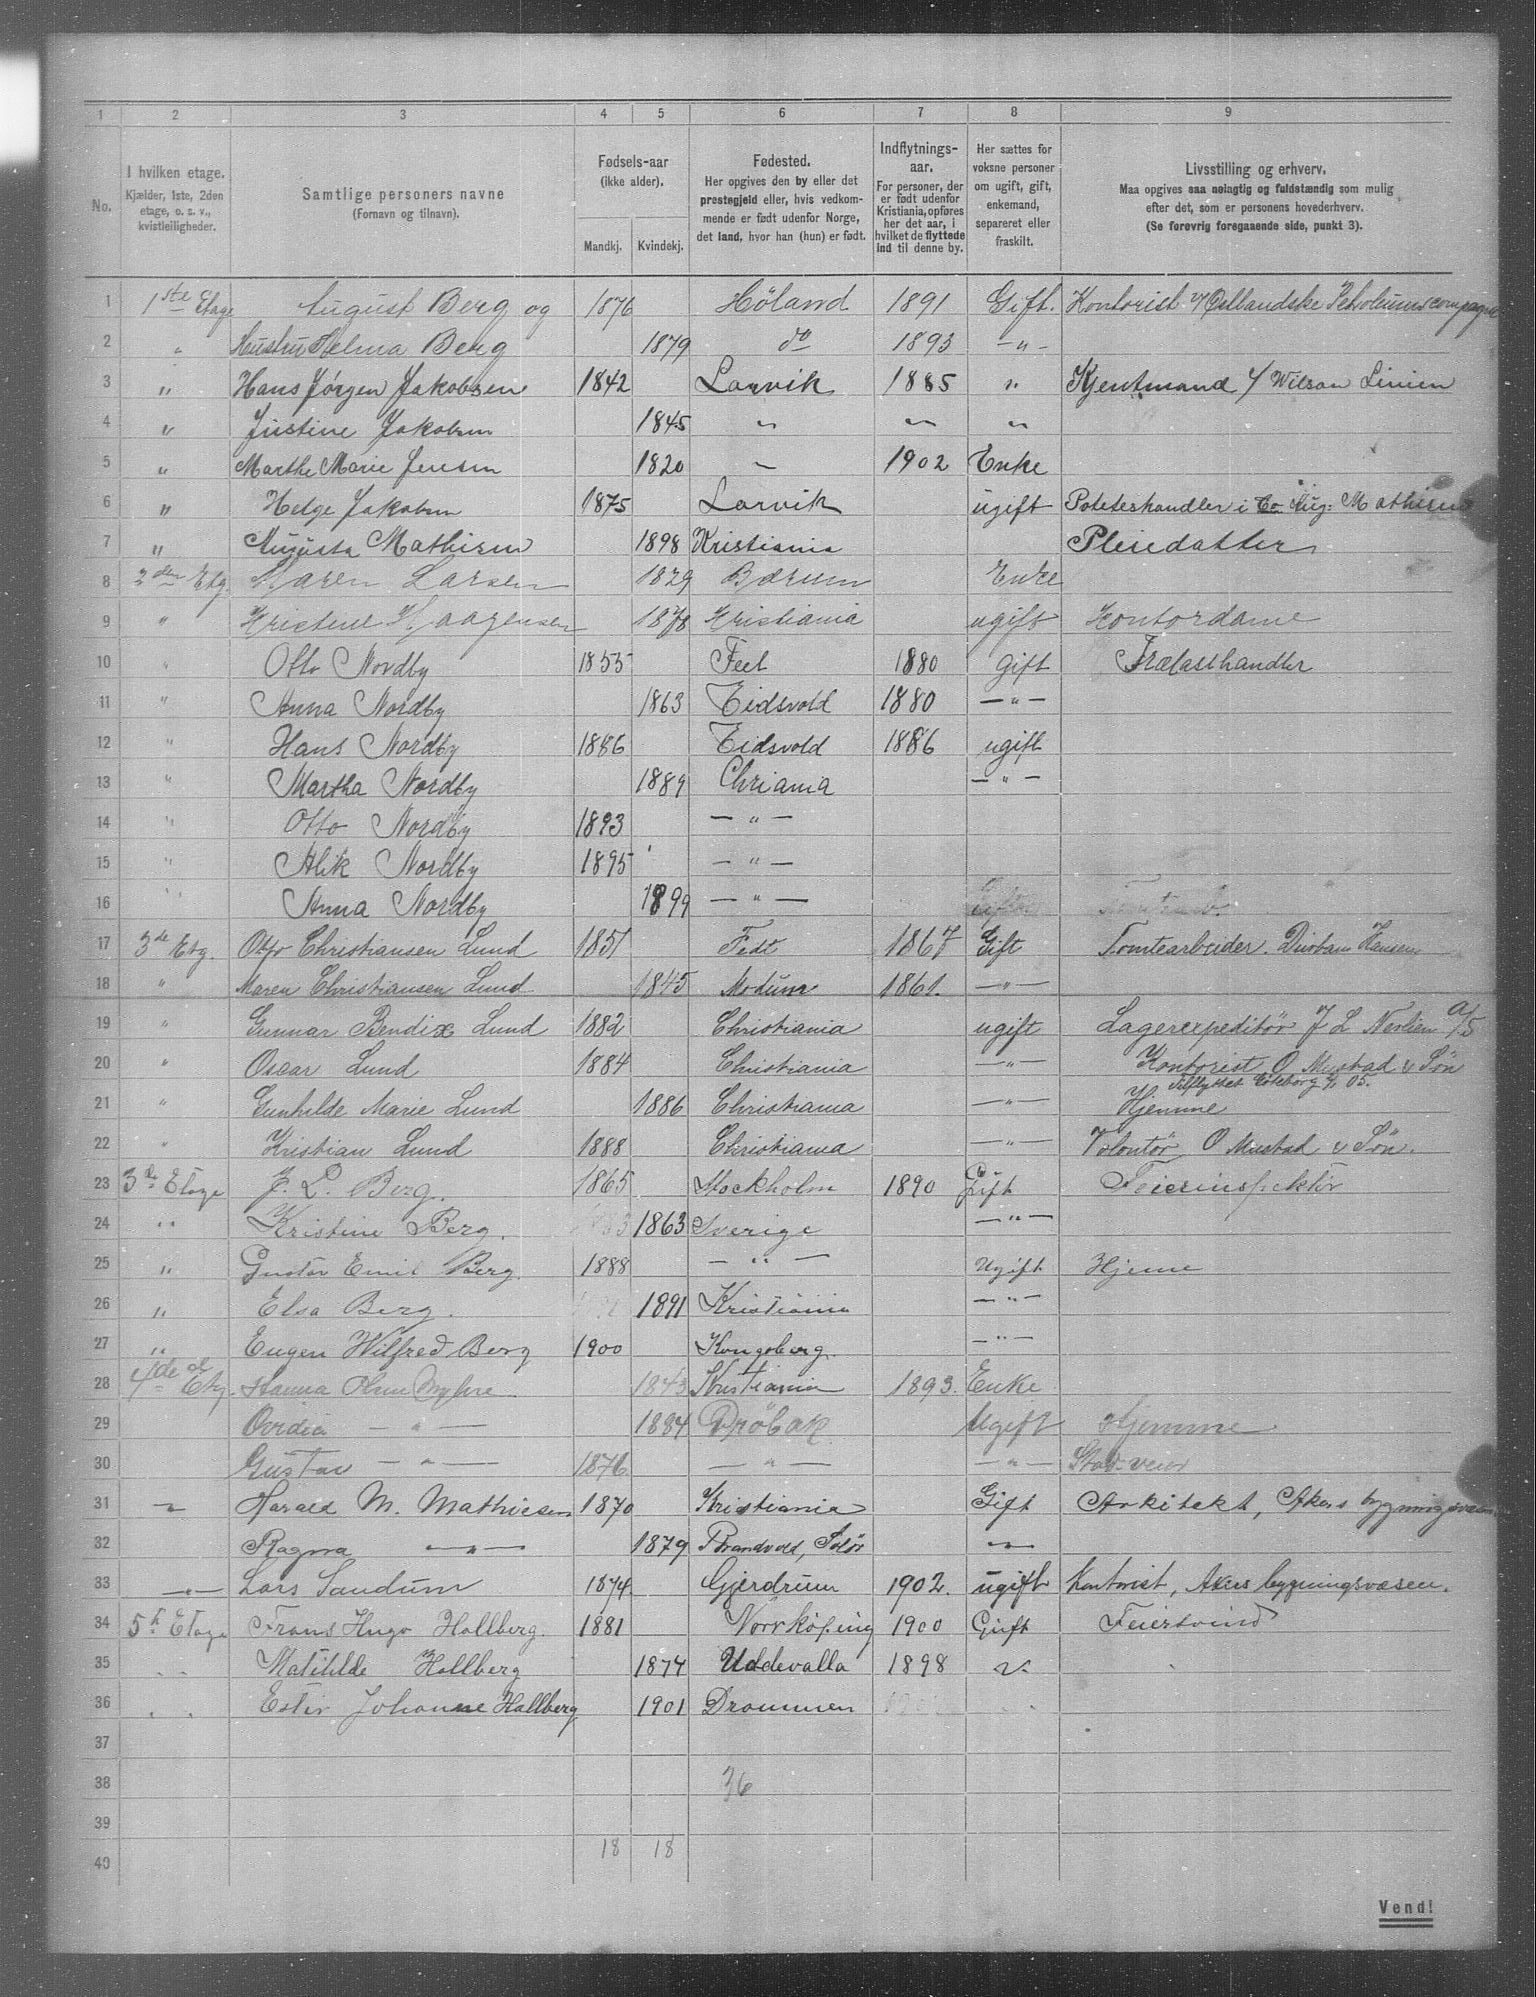 1 2 3 4 5 6 7 8 9
No.
I hvilken etage.
Kjælder, 1ste, 2den
etage, o. s. v.,
kvistleiligheder.
Samtlige personers navne
(Fornavn og tilnavn).
Fødsels-aar
(ikke alder).
Mandkj. Kvindekj.
Fødested.
Her opgives den by eller det
prestegjeld eller, hvis vedkom-
mende er født udenfor Norge,
det land, hvor han (hun) er født.
Indflytnings-
aar.
For personer, der
er født udenfor
Kristiania, opføres
her det aar, i
hvilket de flyttede
ind til denne by.
Her sættes for
voksne personer
om ugift, gift,
enkemand,
separeret eller
fraskilt.
Livsstilling og erhverv.
Maa opgives saa nøiagtig og fuldstændig som mulig
efter det, som er personens hovederhverv.
(Se forøvrig foregaaende side, punkt 3).
1 1ste Etage August Berg og 1876 Høland 1891 Gift. Kontorist v/ Østlandske Petroleumscompagni
2 " Hustru Helma Berg 1879 do 1893 — " —
3 " Hans Jørgen Jakobsen 1842 Larvik 1885 " Kjentmand / Wilson Linien
4 " Justine Jakobsen 1845 " " "
5 " Marthe Marie Jensen 1820 " 1902 Enke
6 " Helge Jakobsen 1875 Larvik ugift Poteteshandler i Co Aug. Mathisen
7 " Augusta Mathisen 1898 Kristiania Pleiedatter
8 2den Etg. Maren Larsen 1829 Bærum Enke
9 " Kristine Haagensen 1878 Kristiania ugift Kontordame
10 " Otto Nordby 1855 Feet 1880 gift Trælasthandler
11 " Anna Nordby 1863 Eidsvold 1880 — " —
12 " Hans Nordby 1886 Eidsvold 1886 ugift
13 " Martha Nordby 1889 Chriania — " —
14 " Otto Nordby 1893 — " —
15 " Alik Nordby 1895 — " —
16 " Anna Nordby 1899 — " —
17 3de Etg. Otto Christiansen Lund 1851 Fedt 1867 Gift Tomtearbeider. Hansen
18 " Maren Christiansen Lund 1845 Modum 1861. — " —
19 " Gunnar Bendix Lund 1882 Christiania ugift Lagerexpeditør J L Nerlien A/S
20 " Oscar Lund 1884 Christiania — " — Kontorist O Mustad & Søn
Tilflyttet Gøteborg 05.
21 " Gunhilde Marie Lund 1886 Christiania — " — Hjemme
22 " Kristian Lund 1888 Christiania — " — Volontør O Mustad & Søn.
23 3de Etage J. L. Berg. 1865 Stockholm 1890 Gift Feierinspektør
24 " Kristine Berg. 1863 Sverige — " —
25 " Gustav Emil Berg. 1888 — " — Ugift Hjeme
26 " Elsa Berg. 1891 Kristiania — " —
27 " Eugen Wilfred Berg 1900 Kongsberg. — " —
28 4de Etg. Hanna Olsen Myhre 1843 Kristiania 1893. Enke
29 Ovidia — " — 1884 Drøbak Ugift Hjemme
30 Gustav — " — 1876 — " — — " —
31 " Harald M. Mathiesen 1870 Kristiania Gift Arkitekt, Akers bygningsvæsen
32 Ragna — " — 1879 Brandvold, Solør "
33 — " — Lars Sandum 1874. Gjerdrum 1902. ugift Kontorist, Akers bygningsvæsen.
34 5te Etage Frans Hugo Hallberg. 1881 Norrköping 1900 Gift Feiersvend
35 " Matilde Hallberg 1874 Uddevalla 1898 "
36 " Ester Johanne Hallberg 1901 Drammen
37
38 36
39
40 18 18
Vend!